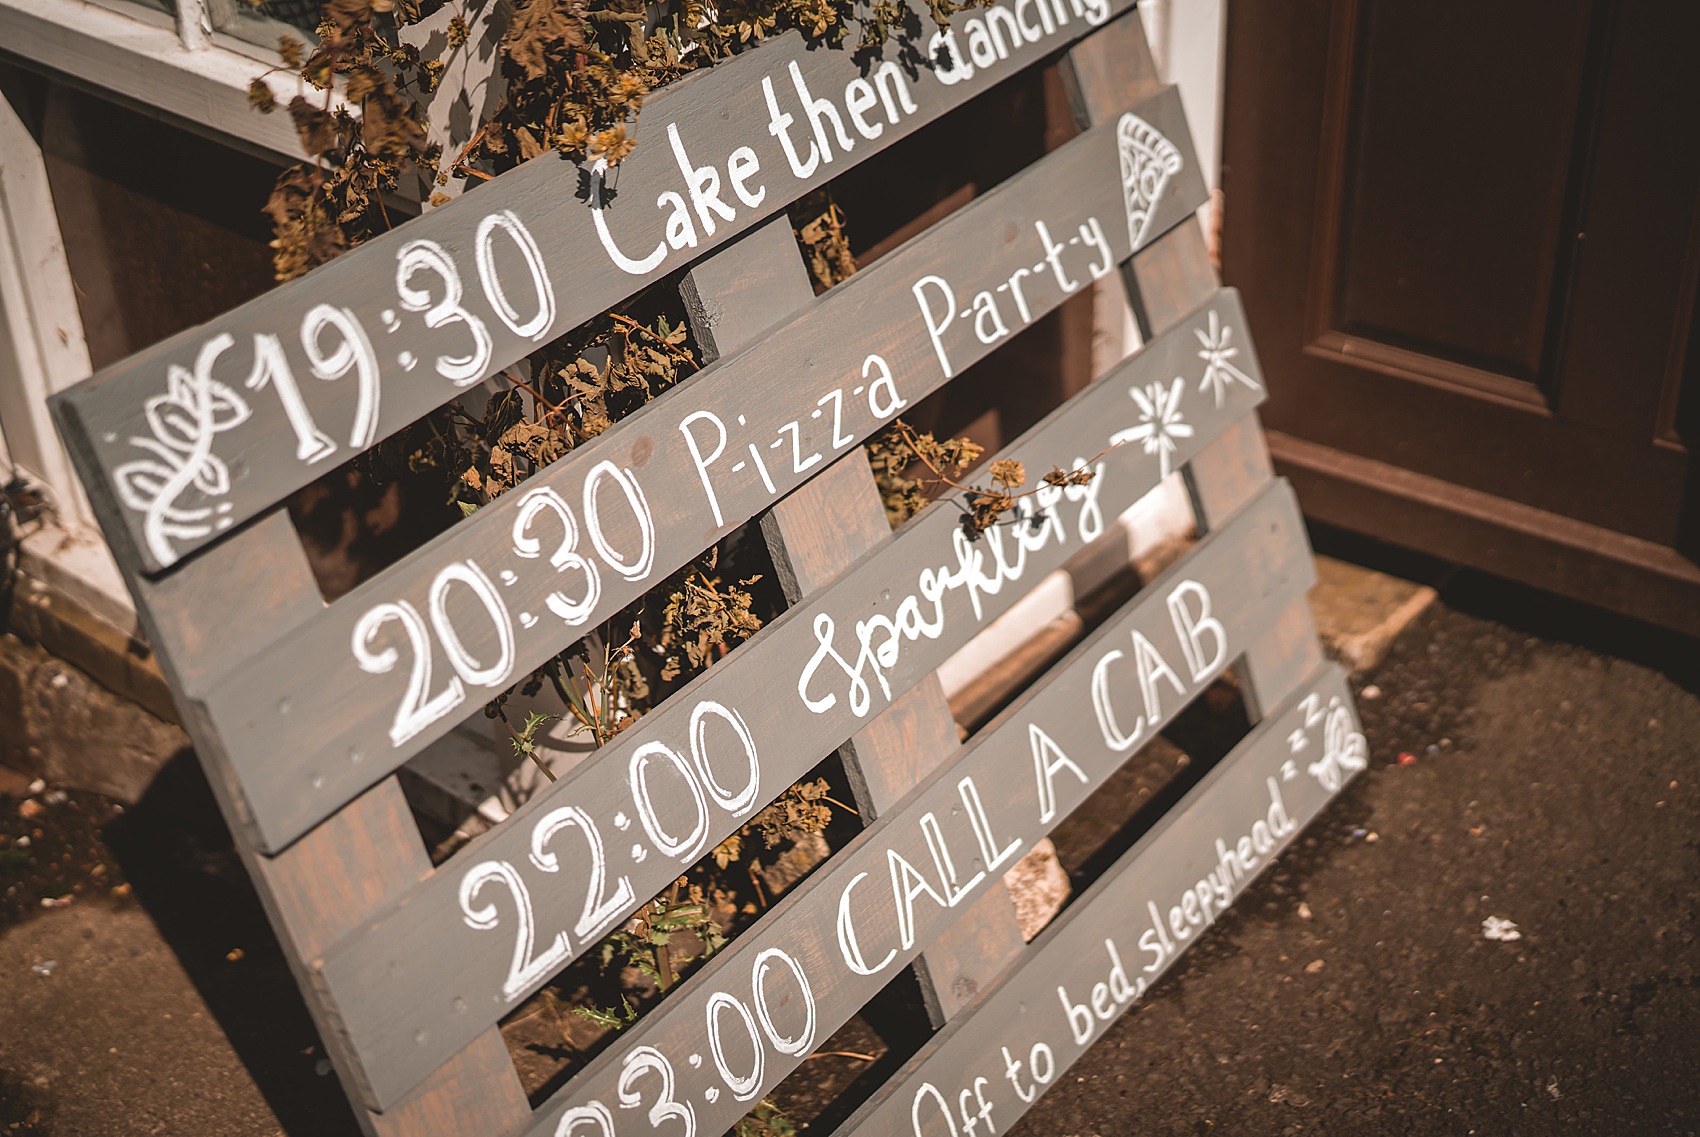 19:30 Cake then dancing
20:30 Pizza Party
22:00 Sparklers
23:00 CALL A CAB
Off to bed, sleepyhead zzz